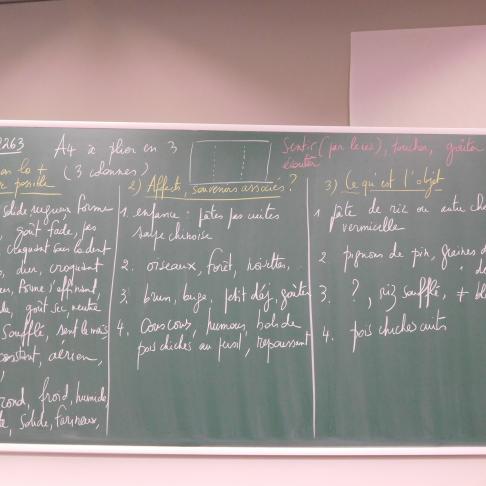 263 A4 à plier en 3
(3 colonnes)
Sentir (par le nez), toucher, goûter
écouter
possible
solide rugueux forme
goût fade, pas
claquent sous la dent
dur, croquant
forme s'effrinant,
goût sec, neutre
soufflé, sent le maïs
constant, aérien,
rond, froid, humide
solide, farineux,
2) Affects, souvenirs associés ?
1. enfance : pâtes pas cuites
soupe chinoise
2. oiseaux, forêt, noisettes,
3. brun, beige, petit déj, goûter
4. couscous, humous, bols de
pois chiches au persil, repoussant
3) Ce qu'est l'objet
1 pâte de riz ou autre
vermicelle
2 pignons de pin, graines
3. ?, riz soufflé, ≠
4. pois chiches cuits